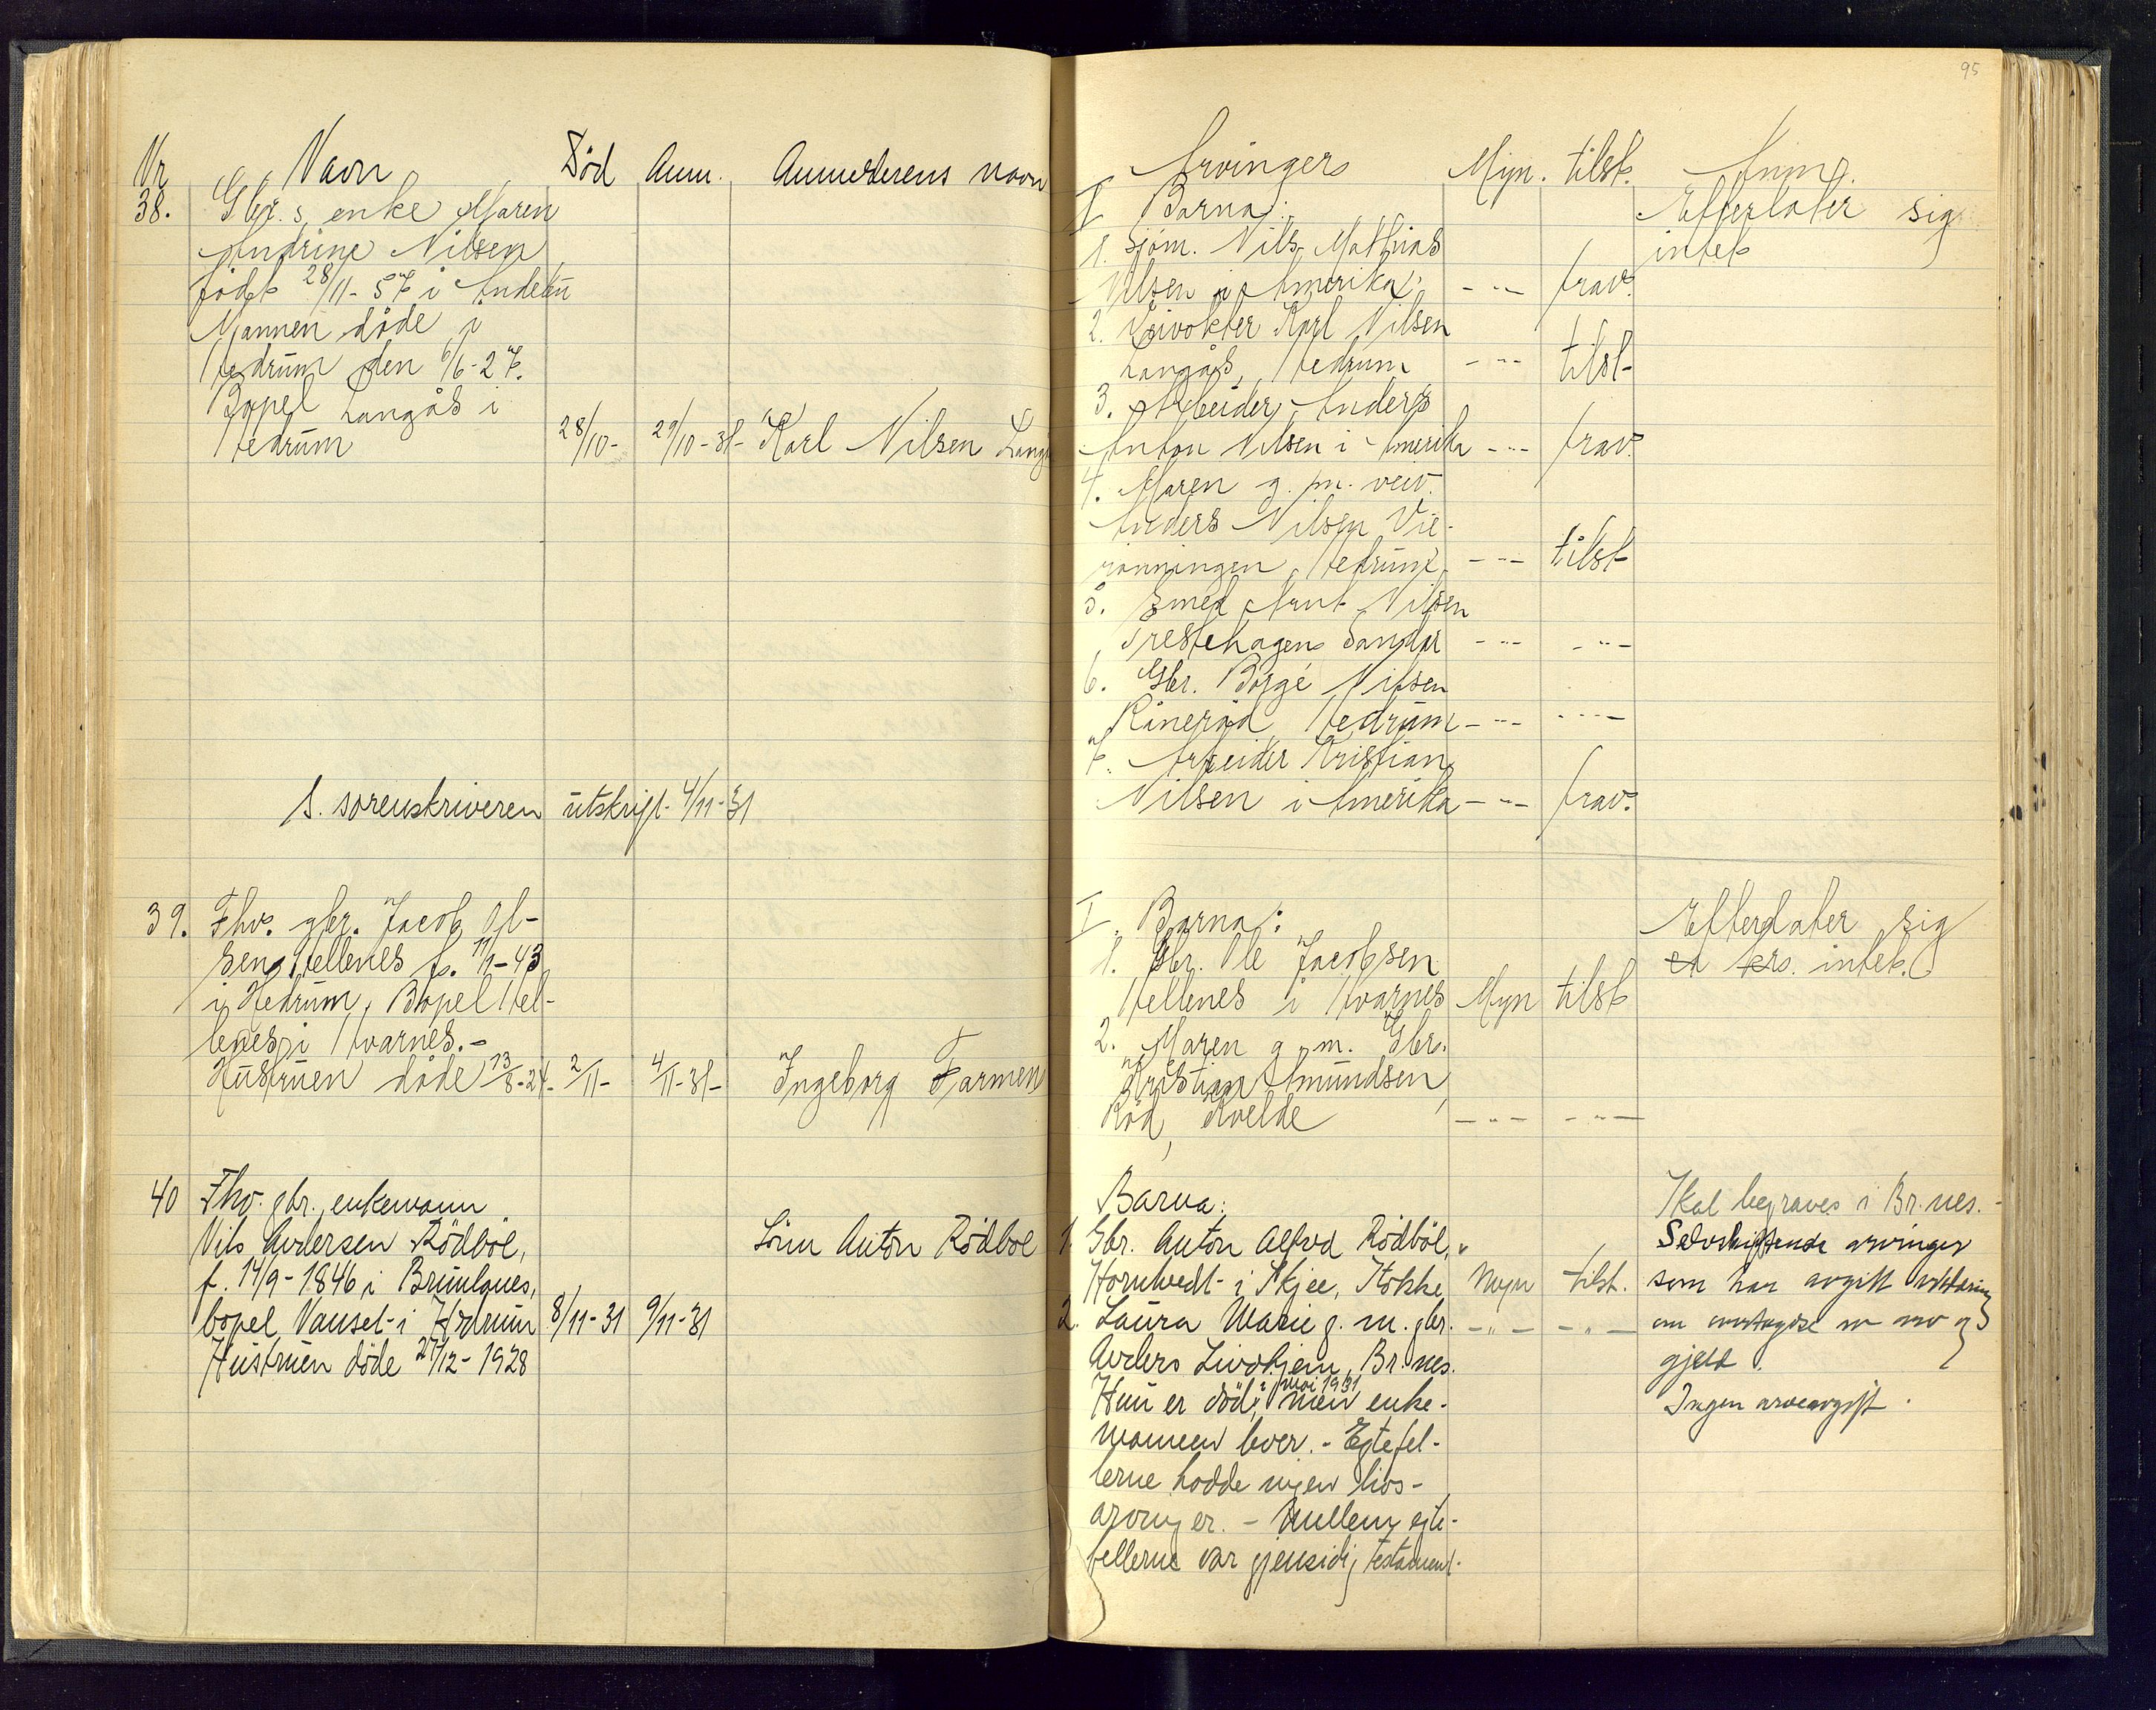 95
Nr Navn Död Anm. Anmelderens navn
38. Gbr.s enke Maren
Andrine Nilsen
födt 28/11-57 i Andebu
Mannen döde i
Hedrum den 6/6-27.
Bopel Langås i
Hedrum 28/10- 29/10-31- Karl Nilsen Lang
S. sorenskriveren utskrift 4/11-31
39. Fhv. gbr. Jacob Ol-
sen Hellenes f. 11/1-43
i Hedrum, Bopel Hel-
lenes i Hvarnes.-
Hustruen döde 13/8-24- 2/11- 4/11-31- Ingeborg Farmen
40 Fhv. gbr. enkemann
Nils Andersen Rödböl, Sönn Anton Rödbol
f. 14/9-1846 i Brunlanes,
bopel Vauset i Hedrum 8/11-31 9/11-31
Hustruen döde 27/12-1928
Arvingers Myn. tilst. Anm.
I Barna: Efterlater sig
1. Sjöm. Nils Mathias intet
Nilsen i Amerika - " - frav.
2. Veivokter Karl Nilsen
Langås, Hedrum - " - tilst-
3. Arbeider Anders
Anton Nilsen i Amerika - " - frav.
4. Maren g. m. veiv.
Anders Nilsen Vie-
rönningen, Hedrum, - " - tilst
5. Smed Arnt Nilsen
Prestehagen Sandar - " - - " -
6. Gbr. Börge Nilsen
Råneröd Hedrum - " - - " -
7. Arbeider Kristian
Nilsen i Amerika - " - frav.
I. Barna: Efterlater sig
1. Gbr. Ole Jacobsen en krs. intet.
Hellenes i Hvarnes Myn tilst
2. Maren g. m. Gbr.
Kristian Amundsen,
Röd, Kvelde - " - - " -
Barna: Skal begraves i Br.nes.-
1. Gbr. Anton Alfred Rödböl, Selvskiftende arvinger
Horntvedt i Skjee, Stokke Myn tilst. som har avgitt erklæring
2. Laura Marie g. m. gbr. - " - - " - om overtagelse av arv og
Anders Livohjem, Br.nes. gjeld.
Hun er död i mai 1931, men enke- Ingen arveavgift.
mannen lever. - Egtefel-
lerne hadde ingen livs-
arvinger. - Mellem egte-
fellerne var gjensidig testament.